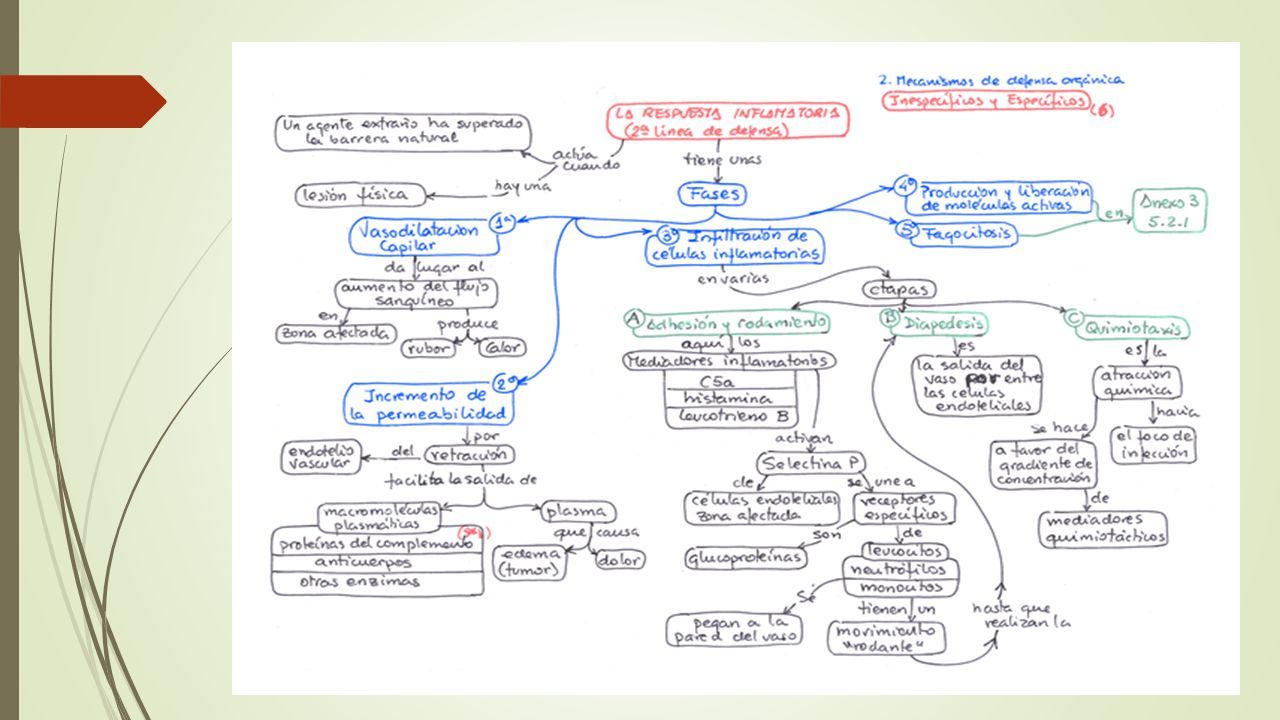 2. Mecanismos de defensa orgánica
Inespecíficos y Específicos (6)
LA RESPUESTA INFLAMATORIA
(2ª línea de defensa)
actúa
cuando
Un agente extraño ha superado
la barrera natural
hay una
lesión física
tiene unas
Fases
1ª
Vasodilatacion
Capilar
da lugar al
aumento del flujo
sanguíneo
en
zona afectada
produce
rubor
calor
2º
Incremento de
la permeabilidad
por
retracción
del
endotelio
vascular
facilita la salida de
macromoléculas
plasmáticas
proteínas del complemento
anticuerpos
otras enzimas
plasma
que causa
edema
(tumor)
dolor
3º Infiltración de
células inflamatorias
en varias
etapas
A Adhesión y rodamiento
aquí los
Mediadores inflamatorios
C5a
histamina
leucotrieno B
activan
Selectina P
de
células endoteliales
zona afectada
se une a
receptores
específicos
son
glucoproteínas
de
leucocitos
neutrófilos
monocitos
Sé
pegan a la
pared del vaso
tienen un
movimiento
"rodante"
hasta que
realizan la
B Diapedesis
es
la salida del
vaso por entre
las celulas
endoteliales
C Quimiotaxis
es la
atracción
química
hacia
el foco de
infección
se hace
a favor del
gradiente de
concentración
de
mediadores
quimiotácticos
4º
Producción y liberación
de moléculas activas
5º Fagocitosis
en
Anexo 3
5.2.1